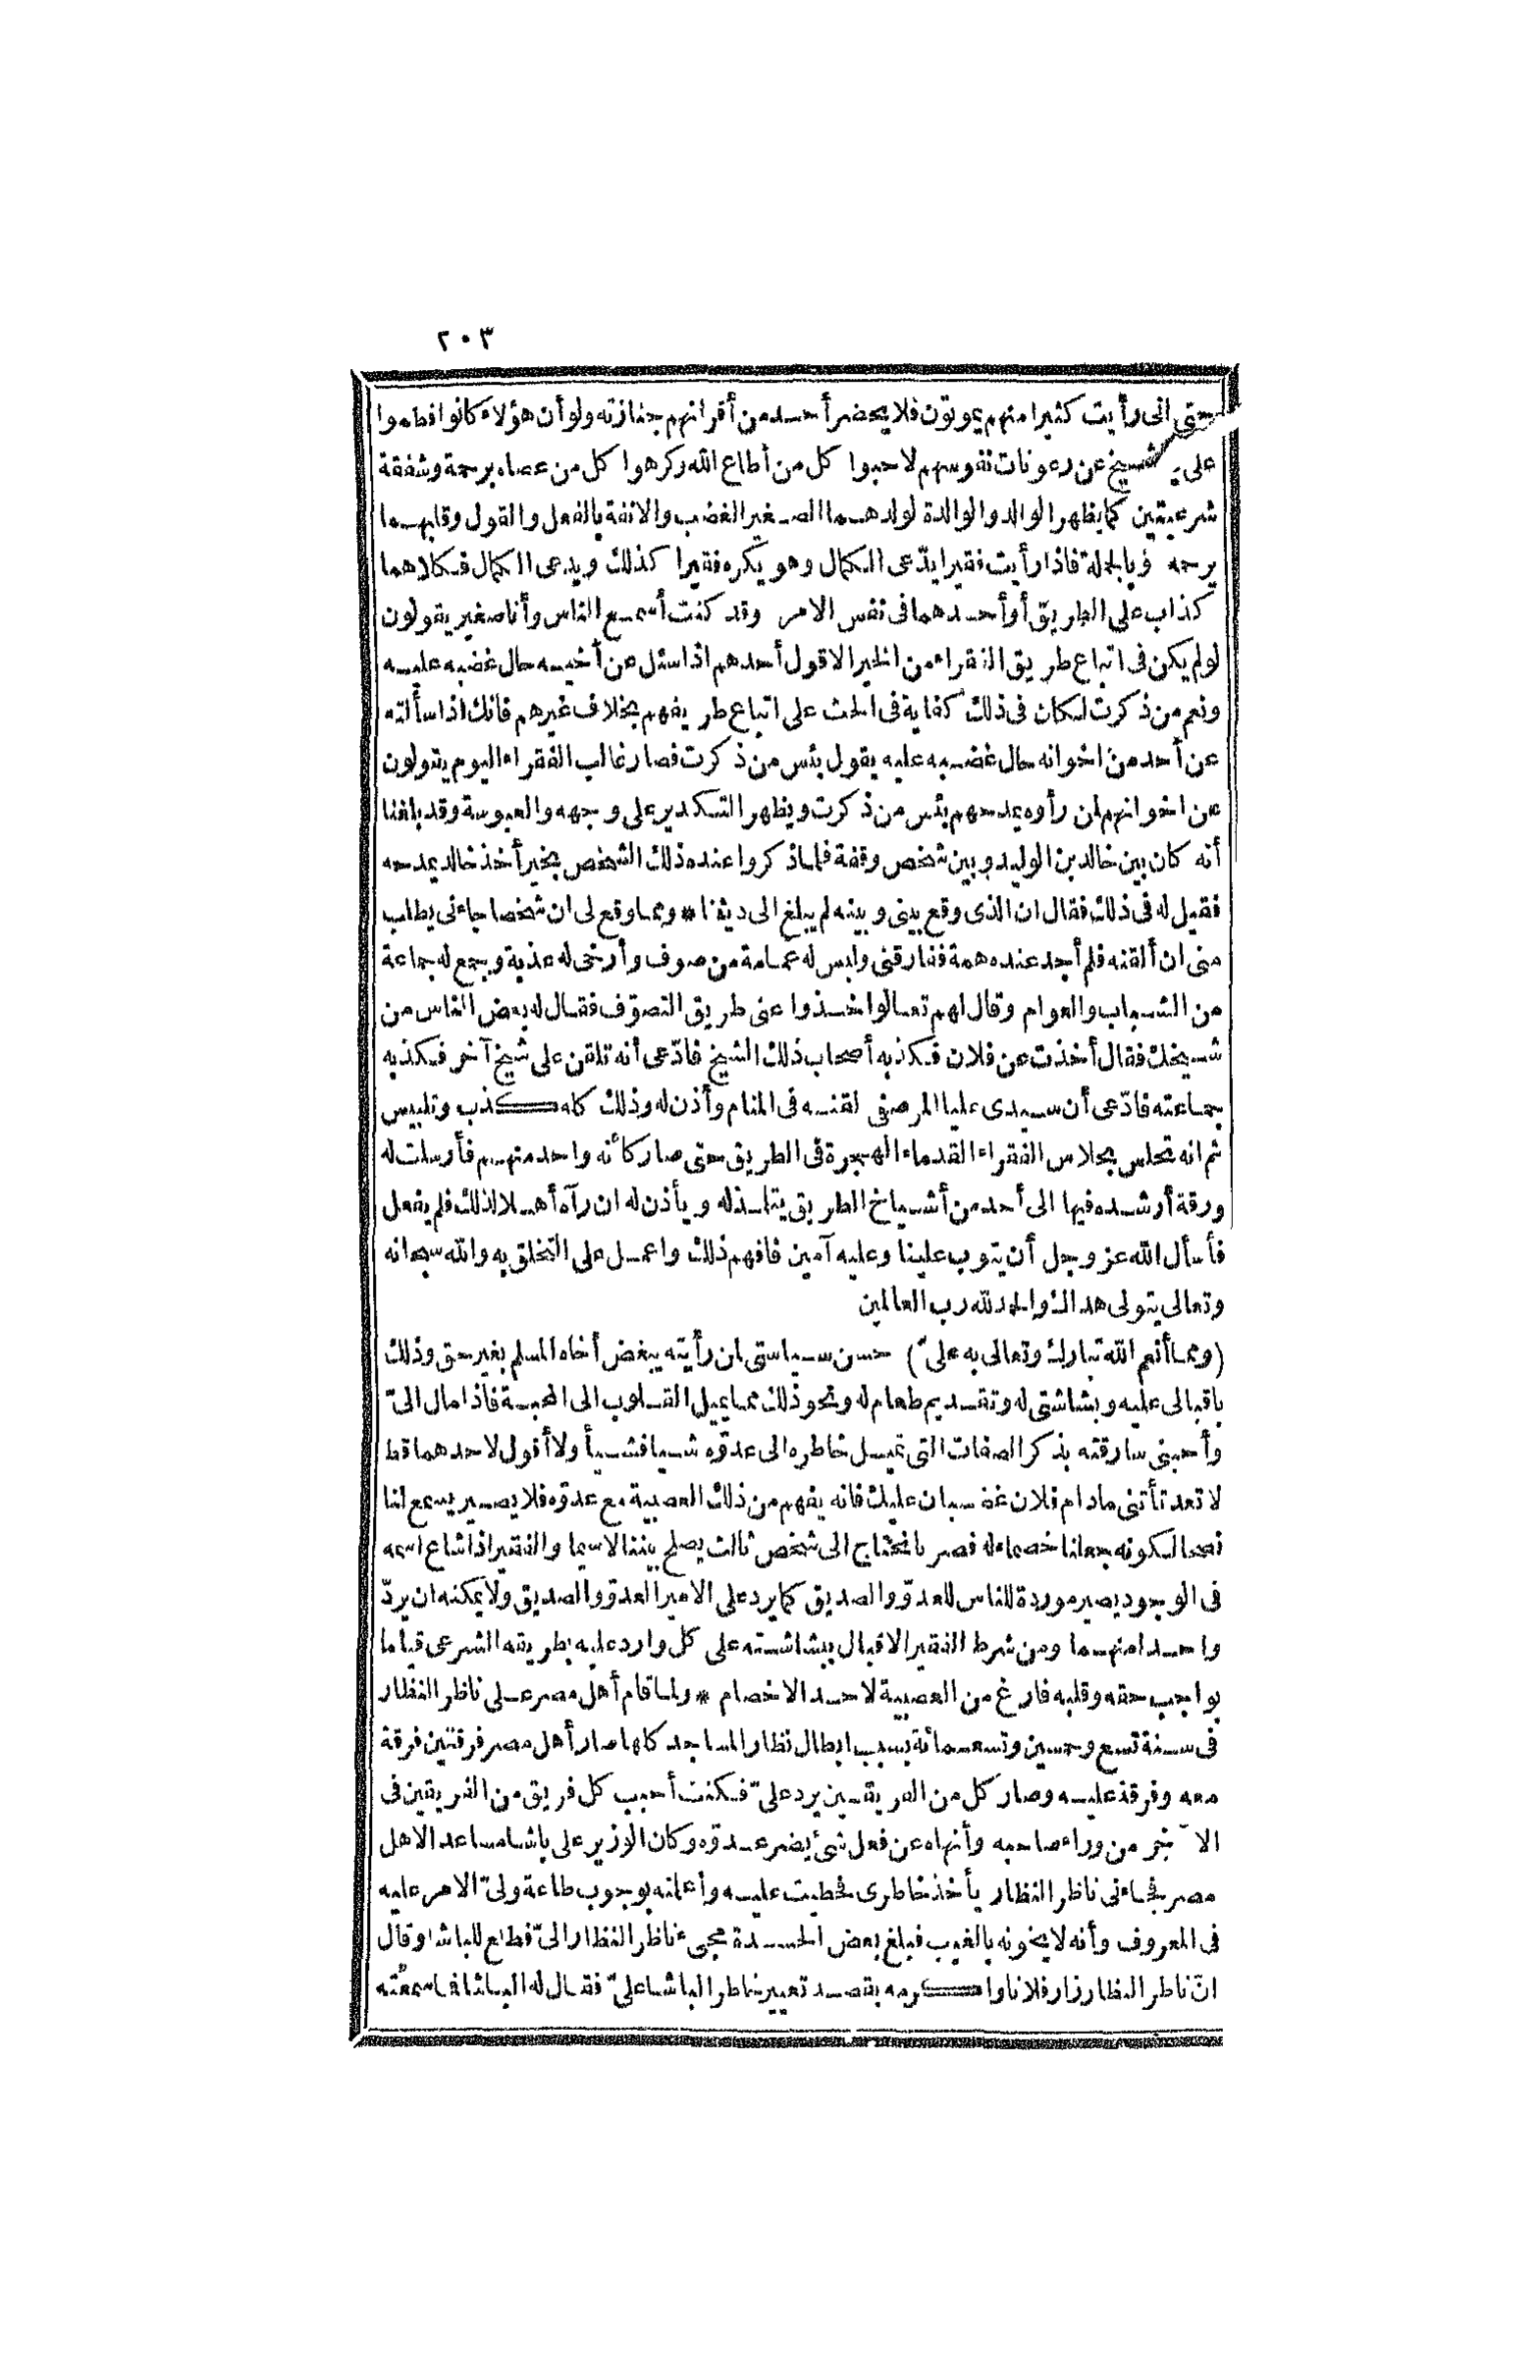 ٢٠٣
حتى انى رأيت كثيرا منهم يموتون فلا يحضر أحد من أقرانهم جنازته ولو أن هؤلاء كانوا فطموا
على شيخ عن رعونات نفوسهم لاحبوا كل من أطاع الله وكرهوا كل من عصاه برحمة وشفقة
شرعيتين كما يظهر الوالد والوالدة لولدهما الصغير الغضب والانفة بالفعل والقول وقلبهما
يرحمه وبالجملة فاذا رأيت فقيرا يدّعى الكمال وهو يكره فقيرا كذلك ويدعى الكمال فكلاهما
كذاب على الطريق أو أحدهما فى نفس الامر وقد كنت أسمع الناس وأنا صغير يقولون
لو لم يكن فى اتباع طريق الفقراء من الخير الا قول أحدهم اذا سئل عن أخيه حال غضبه عليه
ونعم من ذكرت لكان فى ذلك كفاية فى الحث على اتباع طريقهم بخلاف غيرهم فانك اذا سألته
عن أحد من اخوانه حال غضبه عليه يقول بئس من ذكرت فصار غالب الفقراء اليوم يقولون
عن اخوانهم لمن رأوه يمدحهم بئس من ذكرت ويظهر التكدير على وجهه والعبوسة وقد بلغنا
أنه كان بين خالد بن الوليد وبين شخص وقفة فلما ذكروا عنده ذلك الشخص بخير أخذ خالد يمدحه
فقيل له فى ذلك فقال ان الذى وقع بينى وبينه لم يبلغ الى ديننا * ومما وقع لى ان شخصا جاءنى يطلب
منى ان ألقنه فلم أجد عنده همة ففارقنى ولبس له عمامة من صوف وأرخى له عذبة وجمع له جماعة
من الشباب والعوام وقال لهم تعالوا خذوا عنى طريق التصوّف فقال له بعض الناس من
شيخك فقال أخذت عن فلان فكذبه أصحاب ذلك الشيخ فادّعى أنه تلقن على شيخ آخر فكذبه
جماعته فادّعى أن سيدى عليا المرصفى لقنه فى المنام وأذن له وذلك كله كذب وتلبيس
ثم انه تجلس بجلاس الفقراء القدماء الهجرة فى الطريق حتى صار كأنه واحد منهم فأرسلت له
ورقة أرشده فيها الى أحد من أشياخ الطريق يتلمذ له ويأذن له ان رآه أهلا لذلك فلم يفعل
فأسأل الله عز وجل أن يتوب علينا وعليه آمين فافهم ذلك واعمل على التخلق به والله سبحانه
وتعالى يتولى هداك والحمد لله رب العالمين
(ومما أنعم الله تبارك وتعالى به علىّ) حسن سياستى لمن رأيته يبغض أخاه المسلم بغير حق وذلك
باقبالى عليه وبشاشتى له وتقديم طعام له ونحو ذلك مما يميل القلوب الى المحبة فاذا مال الىّ
وأحبنى سارقته بذكر الصفات التى تميل خاطره الى عدوّه شيأ فشيأ ولا أقول لاحدهما قط
لا تعد تأتنى مادام فلان غضبان عليك فانه يفهم من ذلك العصبية مع عدوّه فلا يصير يسمع لنا
نصحا لكونه جعلنا خصماء له فصرنا نحتاج الى شخص ثالث يصلح بيننا لاسيما والفقير اذا شاع اسمه
فى الوجود يصير موردة للناس للعدوّ والصديق كما يرد على الامير العدوّ والصديق ولا يمكنه ان يردّ
واحدا منهما ومن شرط الفقير الاقبال ببشاشته على كل وارد عليه بطريقه الشرعى قياما
بواجب حقه وقلبه فارغ من العصبية لاحد الاخصام * ولما قام أهل مصر على ناظر النظار
فى سنة تسع وخمسين وتسعمائة بسبب ابطال نظار المساجد كلها صار أهل مصر فرقتين فرقة
معه وفرقة عليه وصار كل من الفريقين يرد علىّ فكنت أحبب كل فريق من الفريقين فى
الآخر من وراء صاحبه وأنهاه عن فعل شئ يضر عدوّه وكان الوزير على باشا مساعد الاهل
مصر فجاءنى ناظر النظار يأخذ خاطرى فحطيت عليه وأعلمته بوجوب طاعة ولىّ الامر عليه
فى المعروف وأنه لا يخونه بالغيب فبلغ بعض الحسدة مجىء ناظر النظار الىّ فطلع للباشا وقال
انّ ناظر النظار زار فلانا وأكرمه بقصد تغيير خاطر الباشا علىّ فقال له الباشا فما سمعته